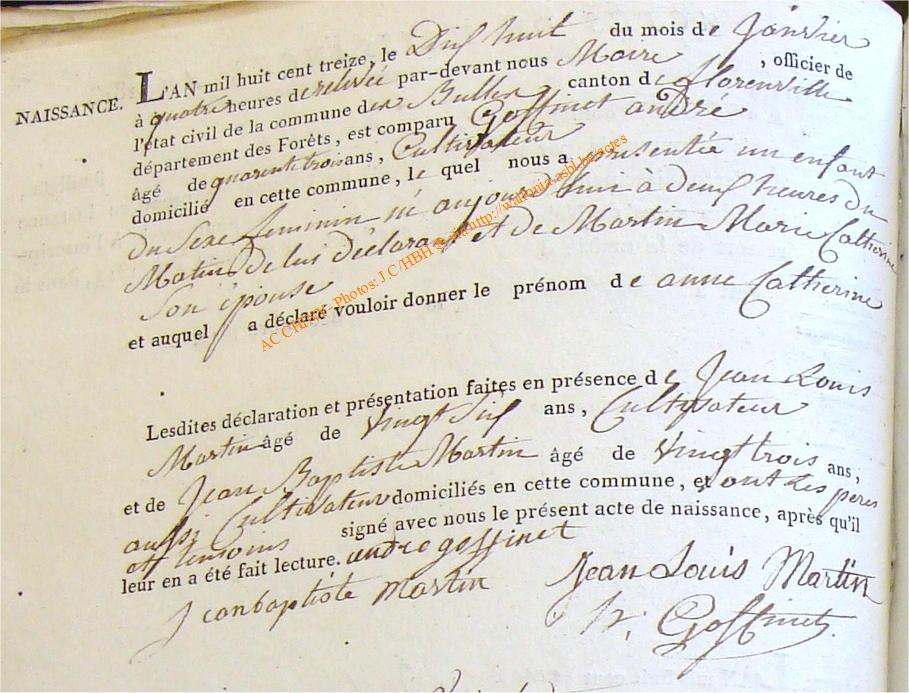 NAISSANCE.
L'AN mil huit cent treize, le Dix huit du mois de Janvier
à quatre heures de relevée par-devant nous Maire, officier de
l'état civil de la commune de Bulles canton de florenville
département des Forêts, est comparu Goffinet andré
âgé de quarente trois ans, Cultivateur
domicilié en cette commune, le quel nous a présentée un enfant
du Sexe feminin né aujourd'hui à deux heures du
Matin, de lui déclarant et de Martin Marie Catherine
Son épouse
et auquel a déclaré vouloir donner le prénom de anne Catherine
Lesdites déclaration et présentation faites en présence de Jean Louis
Martin âgé de vingt Six ans, Cultivateur
et de Jean Baptiste Martin âgé de vingt trois ans,
aussi Cultivateur domiciliés en cette commune, et ont les peres
et temoins signé avec nous le présent acte de naissance, après qu'il
leur en a été fait lecture. andre goffinet
Jeanbaptiste Martin Jean Louis Martin
Goffinet